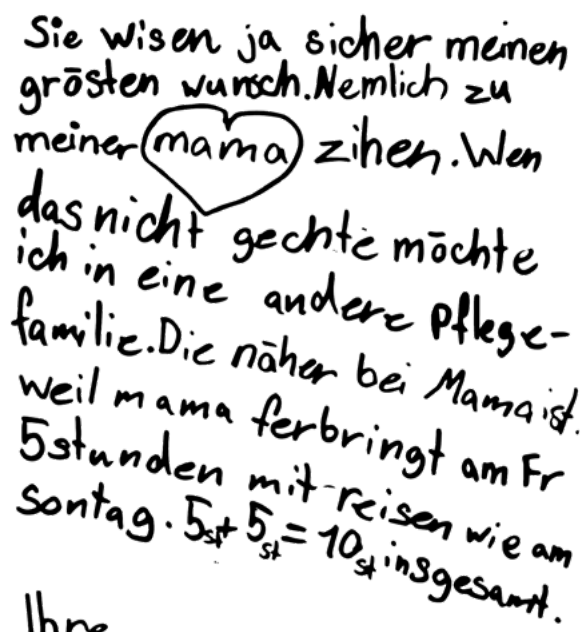 Sie wisen ja sicher meinen
grōsten wunsch. Nemlich zu
meiner mama zihen. Wen
das nicht gechte mōchte
ich in eine andere Pflege-
familie. Die näher bei Mama ist.
weil mama ferbringt am Fr
5 stunden mit reisen wie am
sontag. 5st + 5st = 10st insgesamt.
Ihne